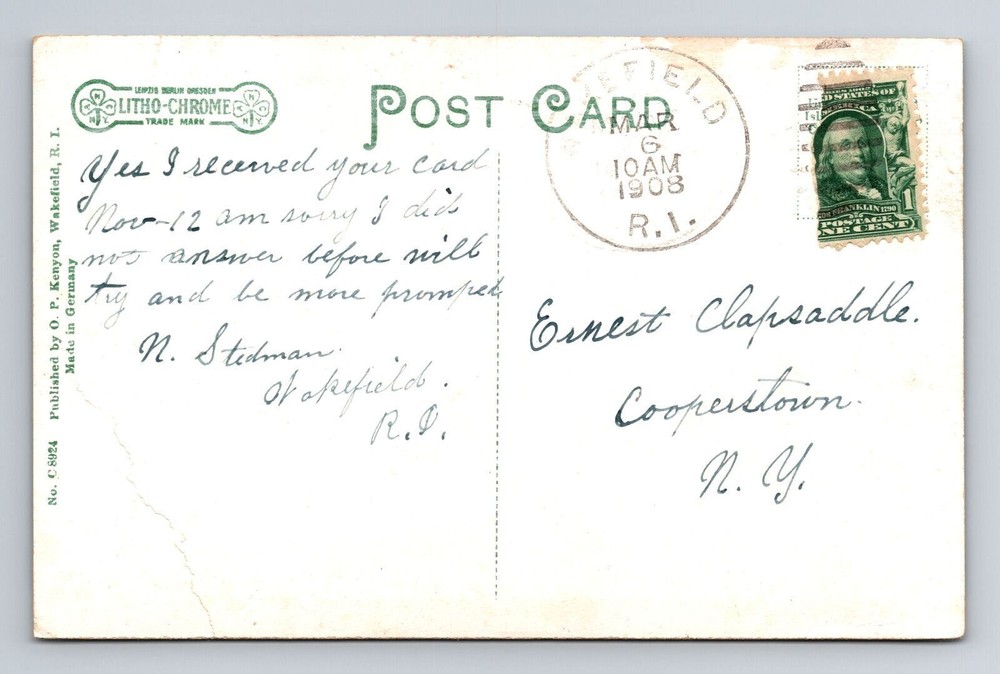 LEIPZIG BERLIN DRESDEN
LITHO-CHROME
TRADE MARK
N.Y.
N.Y.
POST CARD
WAKEFIELD
MAR
6
10 AM
1908
R.I.
UNITED STATES OF
AMERICA
FRANKLIN 1790
1
POSTAGE
ONE CENT
No. C 8924 Published by O. P. Kenyon, Wakefield, R. I.
Made in Germany
Yes I received your card
Nov-12 am sorry I did
not answer before will
try and be more promped.
N. Stedman.
Wakefield.
R.I.
Ernest Clapsaddle.
Cooperstown.
N. Y.